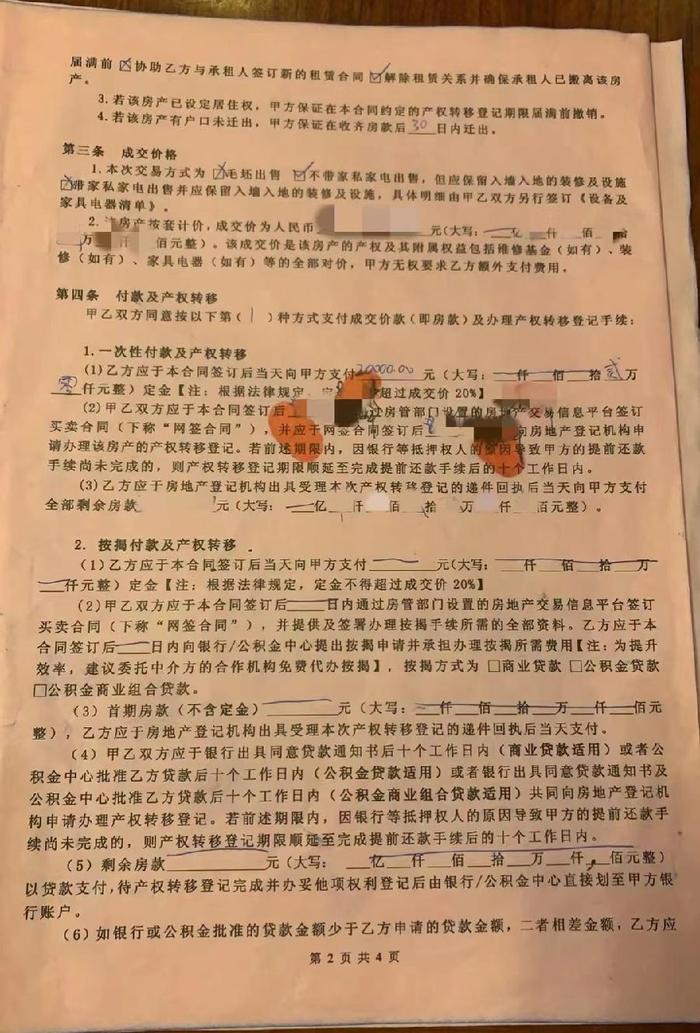 届满前☒协助乙方与承租人签订新的租赁合同☑解除租赁关系并确保承租人已搬离该房
产。
3. 若该房产已设定居住权，甲方保证在本合同约定的产权转移登记期限届满前撤销。
4. 若该房产有户口未迁出，甲方保证在收齐房款后30日内迁出。
第三条 成交价格
1. 本次交易方式为☒毛坯出售 ☑不带家私家电出售，但应保留入墙入地的装修及设施
☒带家私家电出售并应保留入墙入地的装修及设施，具体明细由甲乙双方另行签订《设备及
家具电器清单》。
2. 该房产按套计价，成交价为人民币 元（大写： 亿 仟 佰
万 仟 佰元整）。该成交价是该房产的产权及其附属权益包括维修基金（如有）、装
修（如有）、家具电器（如有）等的全部对价，甲方无权要求乙方额外支付费用。
第四条 付款及产权转移
甲乙双方同意按以下第（1）种方式支付成交价款（即房款）及办理产权转移登记手续：
1. 一次性付款及产权转移
（1）乙方应于本合同签订后当天向甲方支付20000.00元（大写： 仟 佰 拾贰万
零仟元整）定金【注：根据法律规定， 超过成交价 20%】
（2）甲乙双方应于本合同签订后 过房管部门设置的房地产交易信息平台签订
买卖合同（下称“网签合同”），并应于网签合同签订后 向房地产登记机构申
请办理该房产的产权转移登记。若前述期限内，因银行等抵押权人的原因导致甲方的提前还款
手续尚未完成的，则产权转移登记期限顺延至完成提前还款手续后的十个工作日内。
（3）乙方应于房地产登记机构出具受理本次产权转移登记的递件回执后当天向甲方支付
全部剩余房款 元（大写： 亿 仟 佰 拾 万 仟 佰元整）。
2. 按揭付款及产权转移
（1）乙方应于本合同签订后当天向甲方支付 元（大写： 仟 佰 拾 万
仟元整）定金【注：根据法律规定，定金不得超过成交价 20%】
（2）甲乙双方应于本合同签订后 日内通过房管部门设置的房地产交易信息平台签订
买卖合同（下称“网签合同”），并提供及签署办理按揭手续所需的全部资料。乙方应于本
合同签订后 日内向银行/公积金中心提出按揭申请并承担办理按揭所需费用【注：为提升
效率，建议委托中介方的合作机构免费代办按揭】，按揭方式为 □商业贷款 □公积金贷款
□公积金商业组合贷款。
（3）首期房款（不含定金） 元（大写： 仟 佰 拾 万 仟 佰元
整），乙方应于房地产登记机构出具受理本次产权转移登记的递件回执后当天支付。
（4）甲乙双方应于银行出具同意贷款通知书后十个工作日内（商业贷款适用）或者公
积金中心批准乙方贷款后十个工作日内（公积金贷款适用）或者银行出具同意贷款通知书及
公积金中心批准乙方贷款后十个工作日内（公积金商业组合贷款适用）共同向房地产登记机
构申请办理产权转移登记。若前述期限内，因银行等抵押权人的原因导致甲方的提前还款手
续尚未完成的，则产权转移登记期限顺延至完成提前还款手续后的十个工作日内。
（5）剩余房款 元（大写： 亿 仟 佰 拾 万 仟 佰元整）
以贷款支付，待产权转移登记完成并办妥他项权利登记后由银行/公积金中心直接划至甲方银
行账户。
（6）如银行或公积金批准的贷款金额少于乙方申请的贷款金额，二者相差金额，乙方应
第 2 页 共 4 页